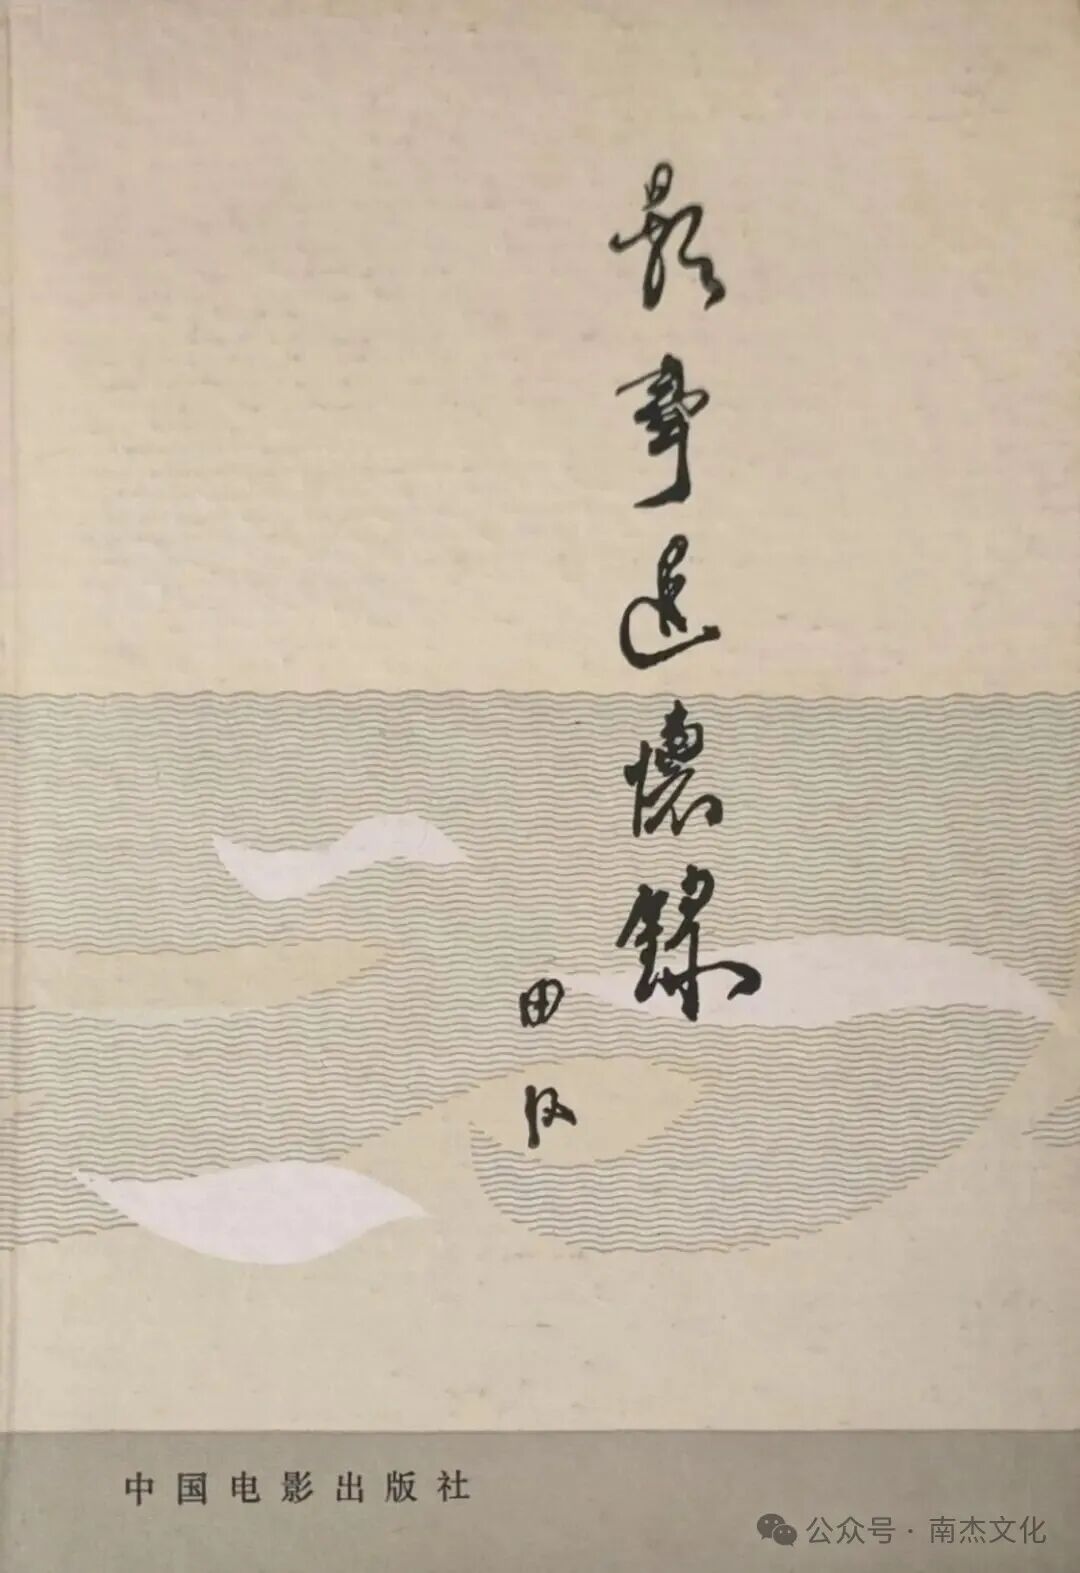 影事追懷錄
田汉
中国电影出版社
公众号·南杰文化